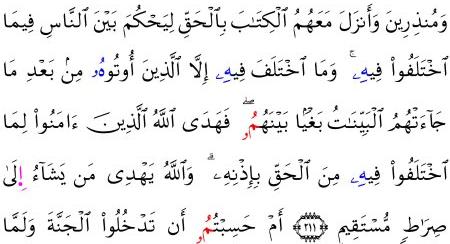 وَمُنذِرِينَ وَأَنزَلَ مَعَهُمُ ٱلْكِتَٰبَ بِٱلْحَقِّ لِيَحْكُمَ بَيْنَ ٱلنَّاسِ فِيمَا
ٱخْتَلَفُوا۟ فِيهِۦ ۚ وَمَا ٱخْتَلَفَ فِيهِۦ إِلَّا ٱلَّذِينَ أُوتُوهُۥ مِنۢ بَعْدِ مَا
جَآءَتْهُمُ ٱلْبَيِّنَٰتُ بَغْيًۢا بَيْنَهُمُۥ ۖ فَهَدَى ٱللَّهُ ٱلَّذِينَ ءَامَنُوا۟ لِمَا
ٱخْتَلَفُوا۟ فِيهِۦ مِنَ ٱلْحَقِّ بِإِذْنِهِۦ ۗ وَٱللَّهُ يَهْدِى مَن يَشَآءُ إِلَىٰ
صِرَٰطٍ مُّسْتَقِيمٍ ﴿٢١١﴾ أَمْ حَسِبْتُمُۥ أَن تَدْخُلُوا۟ ٱلْجَنَّةَ وَلَمَّا